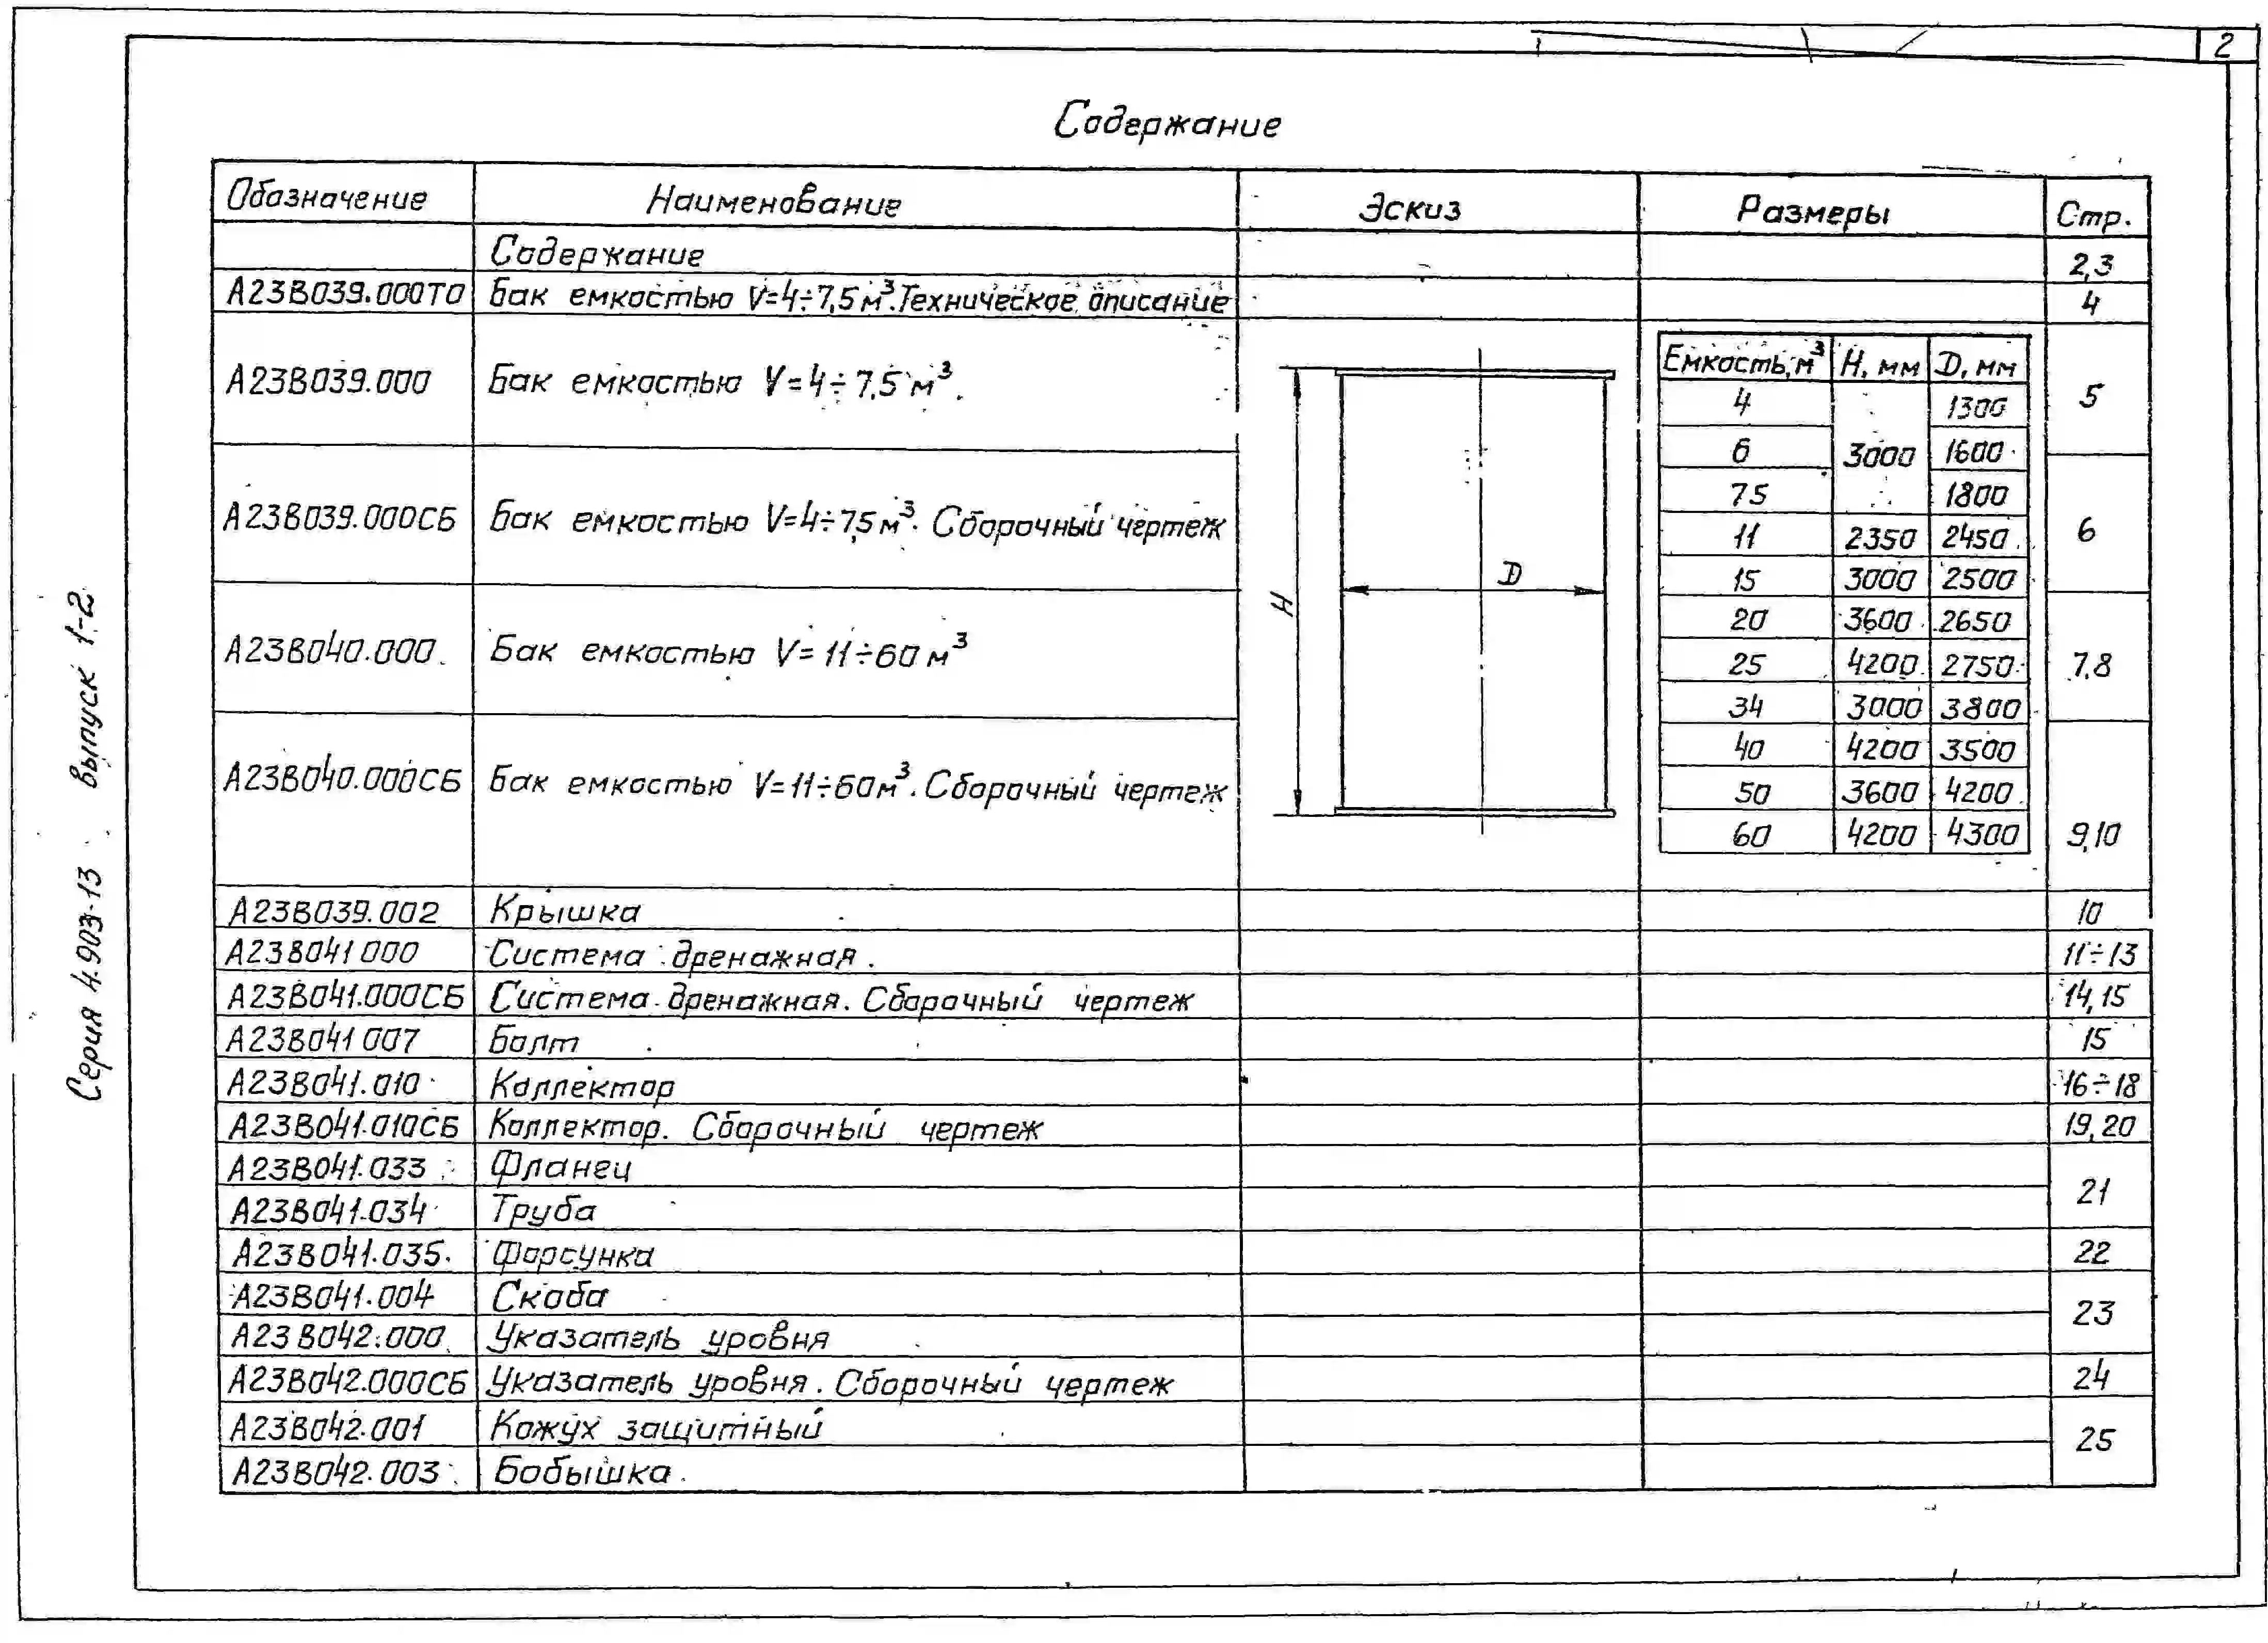 2
Содержание
Обозначение Наименование Эскиз Размеры Стр.
Содержание 2,3
А23В039.000ТО Бак емкостью V=4÷7,5 м³. Техническое описание 4
А23В039.000 Бак емкостью V=4÷7,5 м³. 5
А23В039.000СБ Бак емкостью V=4÷7,5 м³. Сборочный чертеж 6
А23В040.000. Бак емкостью V=11÷60 м³ 7,8
А23В040.000СБ Бак емкостью V=11÷60м³. Сборочный чертеж 9,10
H
D
Емкость, м³ H, мм D, мм
4 3000 1300
6 1600
75 1800
11 2350 2450
15 3000 2500
20 3600 2650
25 4200 2750
34 3000 3800
40 4200 3500
50 3600 4200
60 4200 4300
А23В039.002 Крышка 10
А23В041 000 Система дренажная. 11÷13
А23В041.000СБ Система дренажная. Сборочный чертеж 14,15
А23В041 007 Болт 15
А23В041.010 Коллектор 16÷18
А23В041.010СБ Коллектор. Сборочный чертеж 19,20
А23В041.033 Фланец 21
А23В041.034 Труба
А23В041.035. Форсунка 22
А23В041.004 Скоба 23
А23В042.000 Указатель уровня
А23В042.000СБ Указатель уровня. Сборочный чертеж 24
А23В042.001 Кожух защитный 25
А23В042.003 Бобышка.
Серия 4.903-13 выпуск 1-2